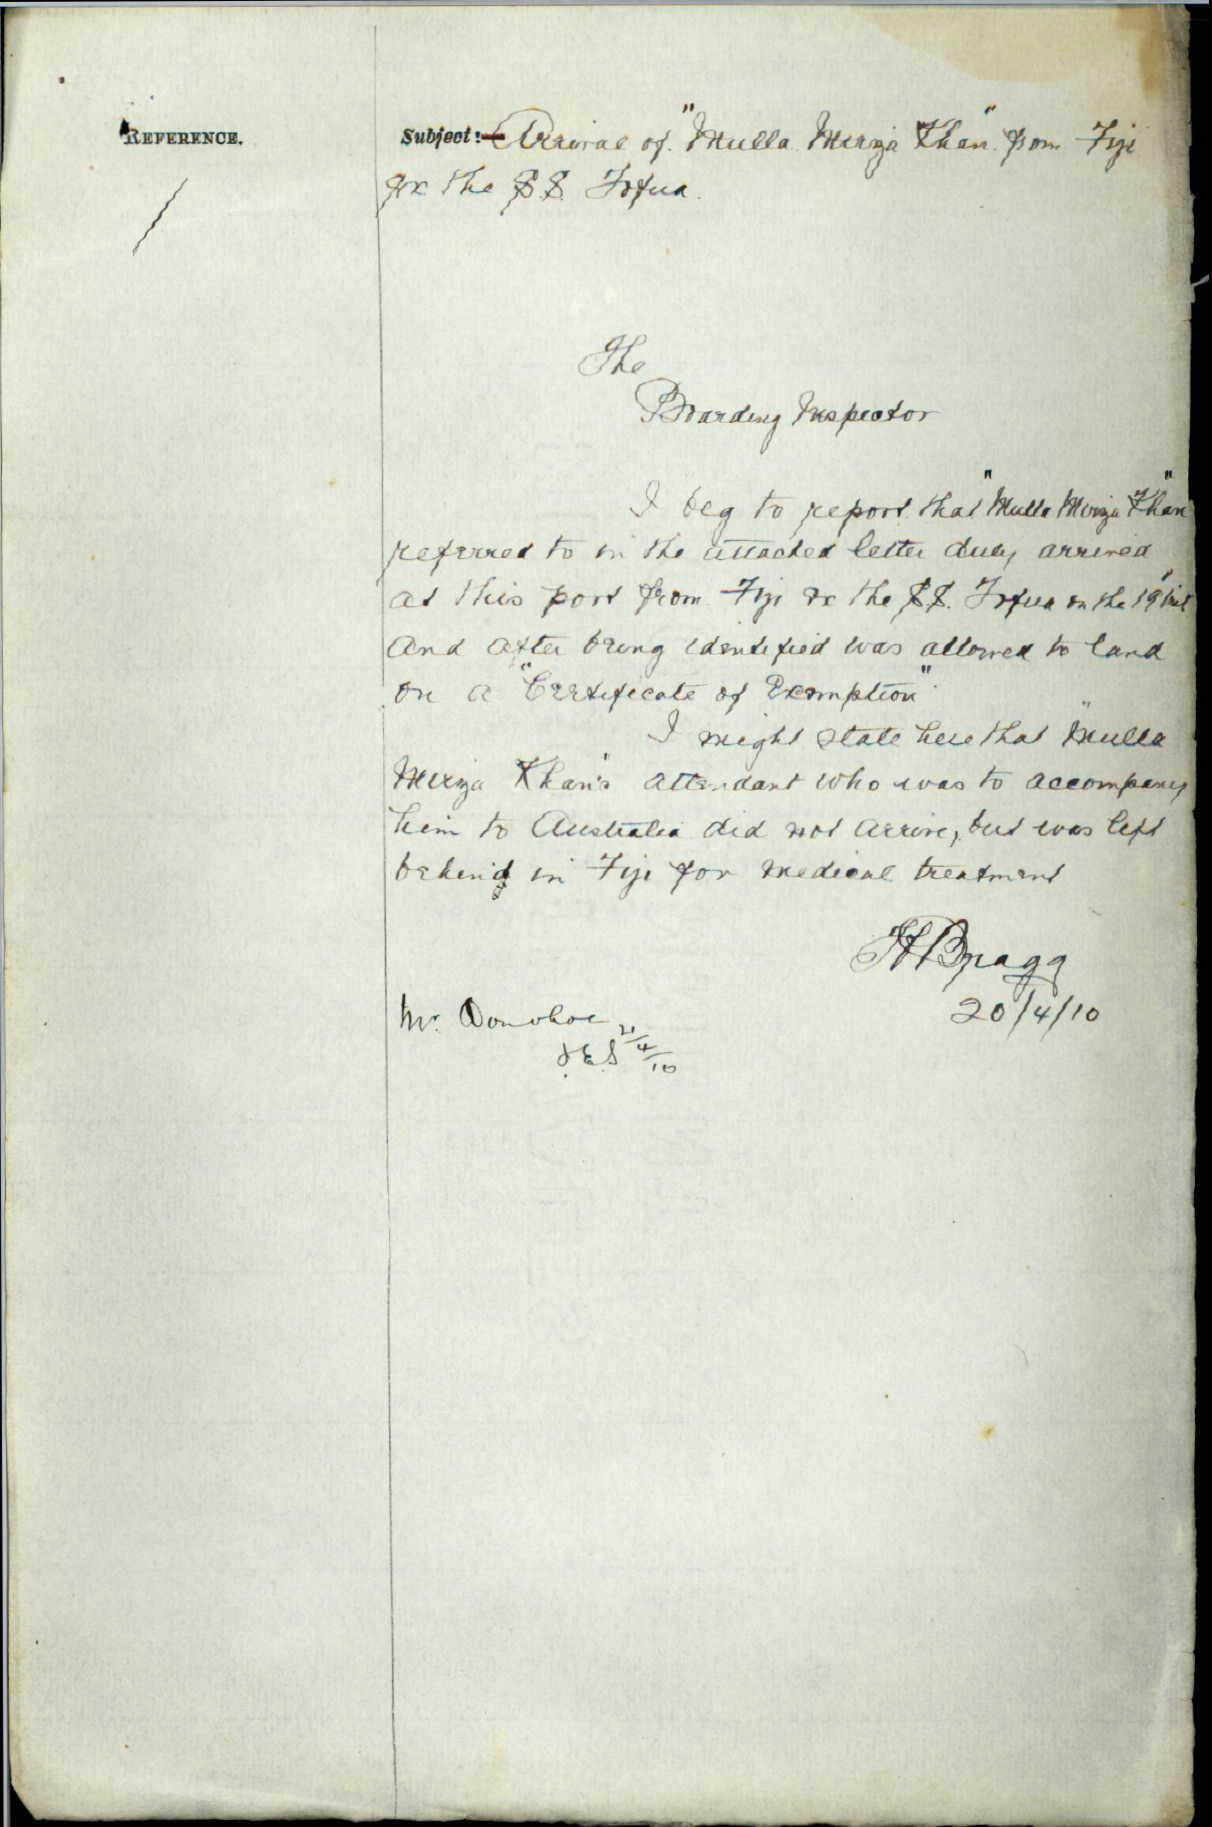 REFERENCE.
Subject:— Arrival of "Mulla Mirza Khan" from Fiji
ex the S.S. Tofua.
The
Boarding Inspector
I beg to report that "Mulla Mirza Khan"
referred to in the attached letter duly arrived
at this port from Fiji ex the S.S. Tofua on the 19th inst
and after being identified was allowed to land
on a "Certificate of Exemption".
I might state here that "Mulla
Mirza Khan's" attendant who was to accompany
him to Australia did not arrive, but was left
behind in Fiji for medical treatment
HBragg
20/4/10
Mr. Donohoe
21/4/10